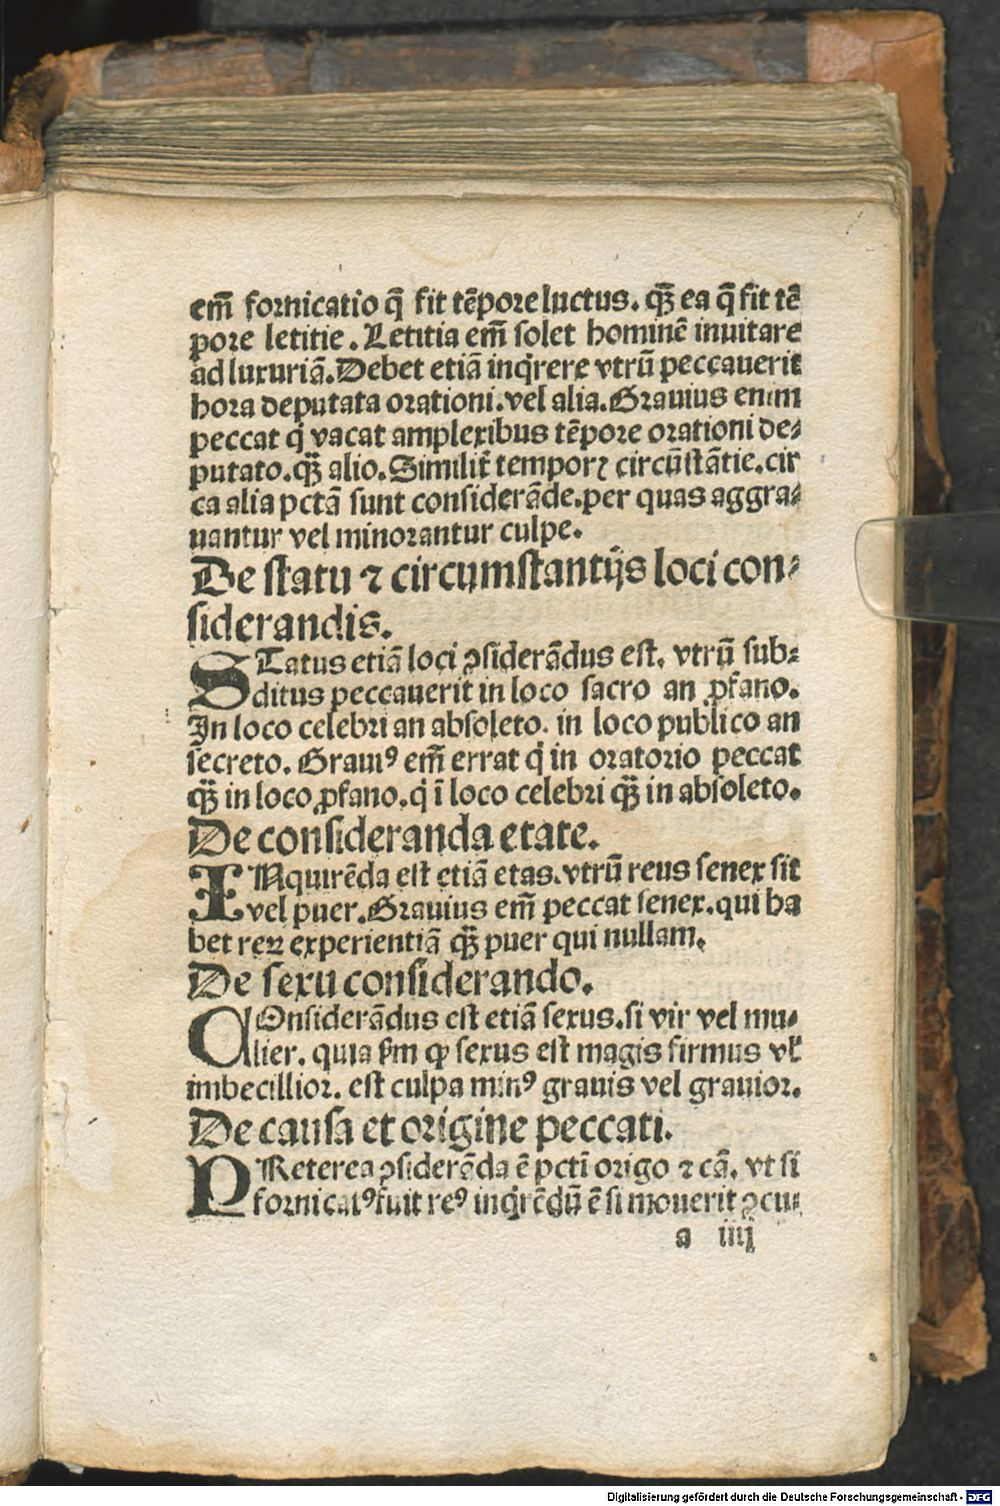 em̃ fornicatio q̃ fit tẽpore luctus. qȝ̃ ea q̃ fit tẽ
pore letitie. Letitia em̃ solet hominẽ inuitare
ad luxuriã. Debet etiã inq̇rere vtrũ peccauerit
hora deputata orationi. vel alia. Grauius enim
peccat q̇ vacat amplexibus tẽpore orationi de⸗
putato. qȝ̃ alio. Similit̃ temporꝝ circũstãtie. cir
ca alia pctã sunt considerãde. per quas aggra⸗
uantur vel minorantur culpe.
De statu ⁊ circumstantijs loci con⸗
siderandis.
STatus etiã loci ꝯsiderãdus est. vtrũ sub⸗
ditus peccauerit in loco sacro an ꝓfano.
In loco celebri an absoleto. in loco publico an
secreto. Grauiꝰ em̃ errat q̇ in oratorio peccat
qȝ̃ in loco ꝓfano. q̇ ĩ loco celebri qȝ̃ in absoleto.
De consideranda etate.
INquirẽda est etiã etas. vtrũ reus senex sit
vel puer. Grauius em̃ peccat senex. qui ha
bet reꝝ experientiã qȝ̃ puer qui nullam.
De sexu considerando.
COnsiderãdus est etiã sexus. si vir vel mu⸗
lier. quia ẜm ꝙ sexus est magis firmus vł
imbecillior. est culpa minꝰ grauis vel grauior.
De causa et origine peccati.
PReterea ꝯsiderẽda ẽ pcti origo ⁊ cã. vt si
fornicatꝰ fuit reꝰ inq̇rẽdũ ẽ si mouerit ꝯcu⸗
a iiij
Digitalisierung gefördert durch die Deutsche Forschungsgemeinschaft - DFG